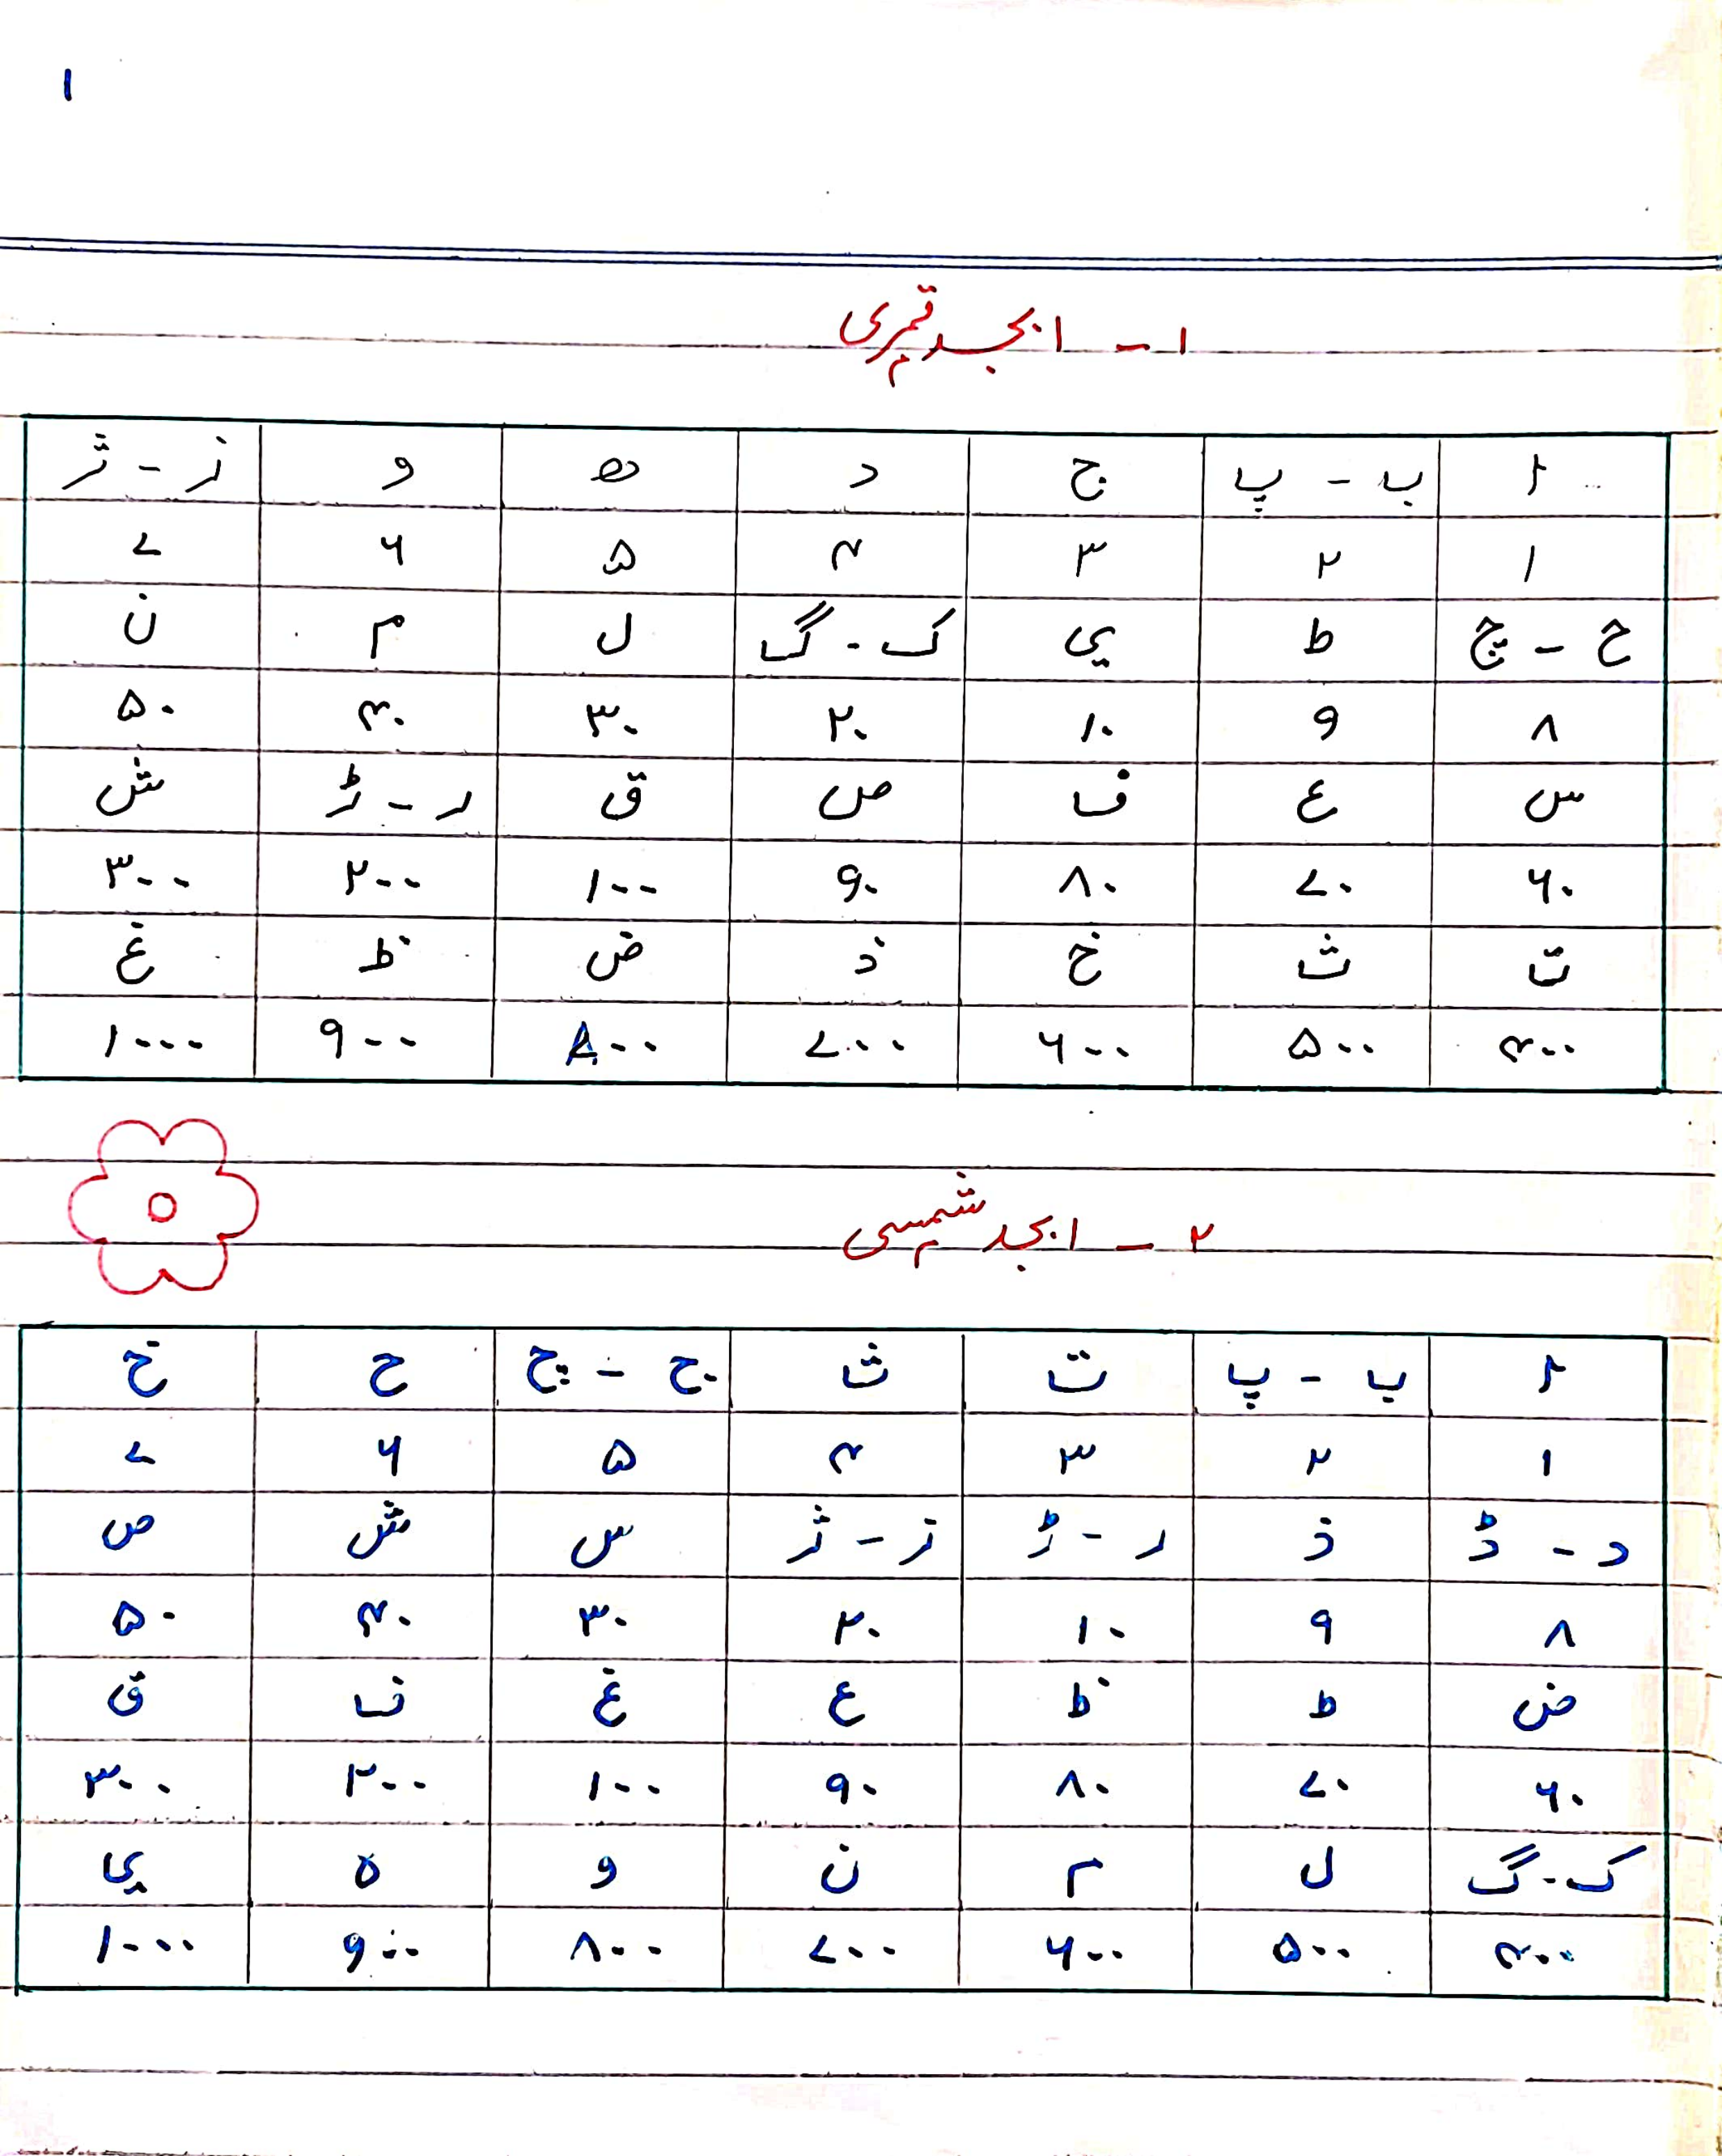 ۱
۱ - ابجد قمری
ا ب - پ ج د ھ و ز - ژ
۱ ۲ ۳ ۴ ۵ ۶ ۷
ح - چ ط ي ک - گ ل م ن
۸ ۹ ۱۰ ۲۰ ۳۰ ۴۰ ۵۰
س ع ف ص ق ر - ڑ ش
۶۰ ۷۰ ۸۰ ۹۰ ۱۰۰ ۲۰۰ ۳۰۰
ت ث خ ذ ض ظ غ
۴۰۰ ۵۰۰ ۶۰۰ ۷۰۰ ۸۰۰ ۹۰۰ ۱۰۰۰
۲ - ابجد شمسی
ا ب - پ ت ث ج - چ ح خ
۱ ۲ ۳ ۴ ۵ ۶ ۷
د - ڈ ذ ر - ڑ ز - ژ س ش ص
۸ ۹ ۱۰ ۲۰ ۳۰ ۴۰ ۵۰
ض ط ظ ع غ ف ق
۶۰ ۷۰ ۸۰ ۹۰ ۱۰۰ ۲۰۰ ۳۰۰
ک - گ ل م ن و ہ ي
۴۰۰ ۵۰۰ ۶۰۰ ۷۰۰ ۸۰۰ ۹۰۰ ۱۰۰۰